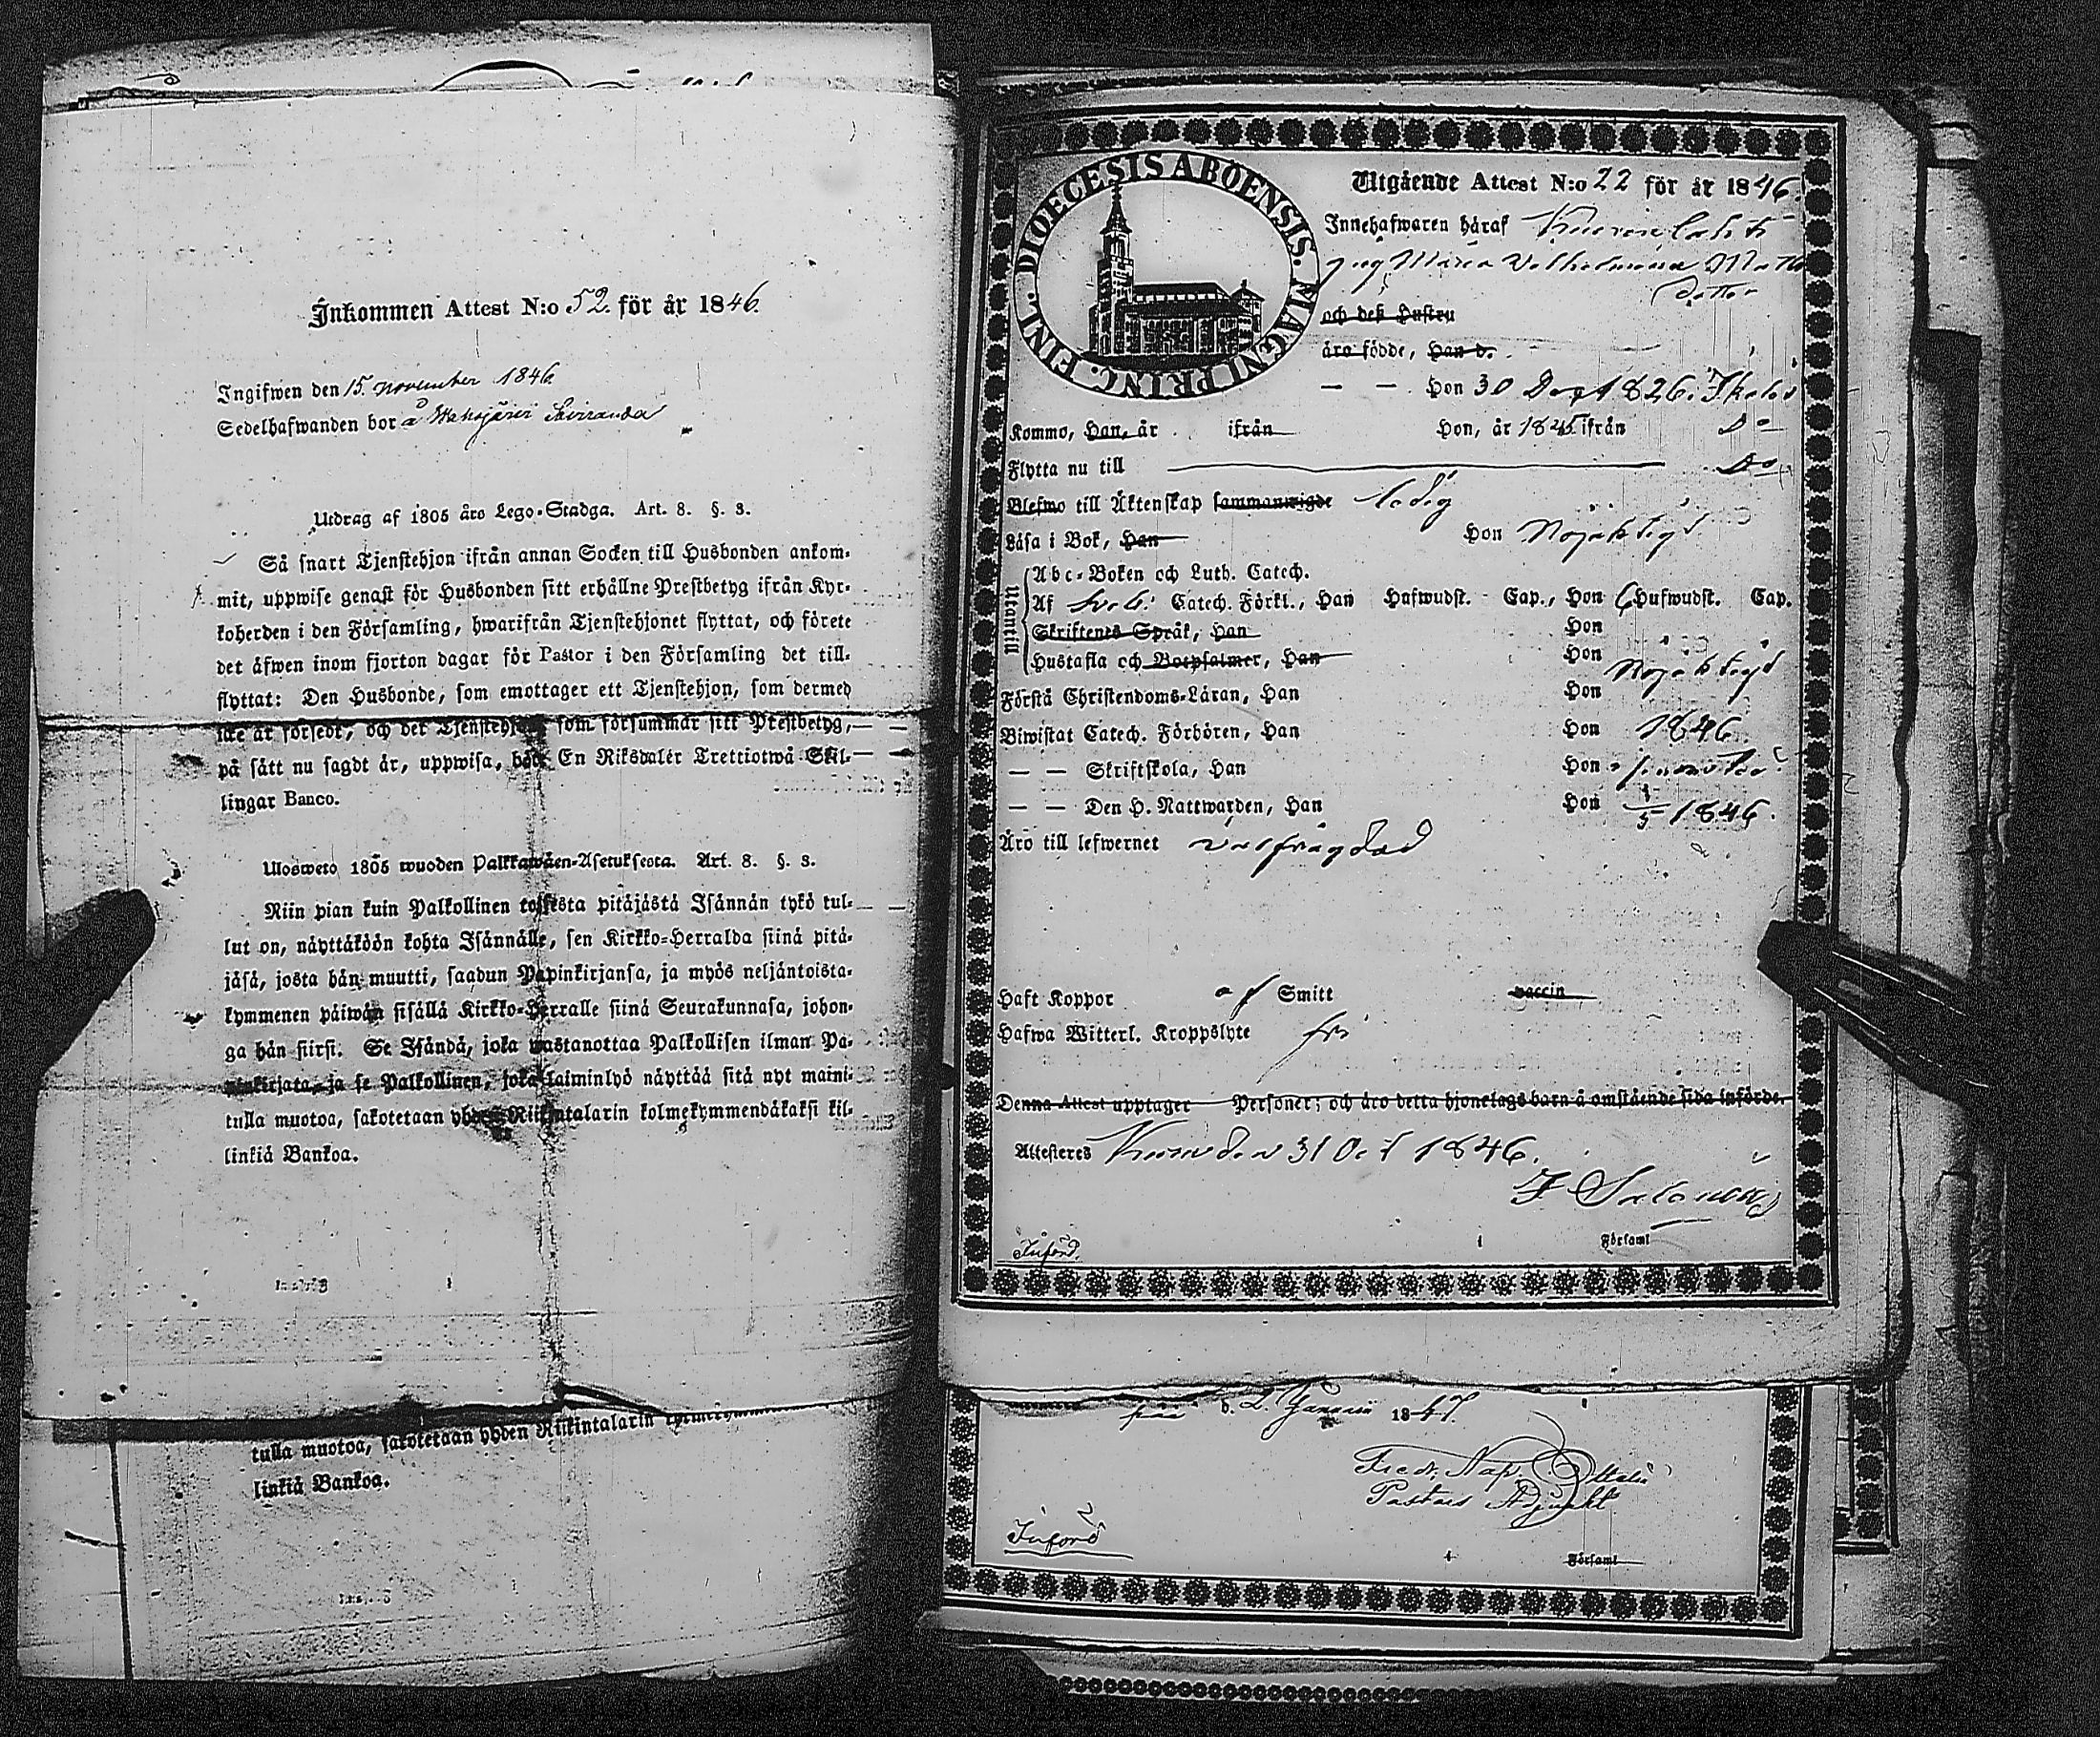 Inkommen Attest N:o 52. för år 1846.
Ingifwen den 15. november 1846.
Sedelhafwanden bor å
Utdrag af 1805 års Lego-Stadga. Art. 8. §. 3.
Så snart Tjenstehjon ifrån annan Socken till Husbonden ankom-
mit, uppwise genast för Husbonden sitt erhållne Prestbetyg ifrån Kyr-
koherden i den Församling, hwarifrån Tjenstehjonet flyttat, och förete
det äfwen inom fjorton dagar för Pastor i den Församling det till-
flyttat: Den Husbonde, som emottager ett Tjenstehjon, som dermed
icke är försedt, och det Tjenstehjon som försummar sitt Prestbetyg,
på sätt nu sagdt är, uppwisa, böte En Riksdaler Trettiotwå Skil-
lingar Banco.
Ulosweto 1805 wuoden Palkkawäen-Asetuksesta. Art. 8. §. 3.
Niin pian kuin Palkollinen toisesta pitäjästä Isännän tykö tul-
lut on, näyttäköön kohta Isännälle, sen Kirkko-Herralda siinä pitä-
jäsä, josta hän muutti, saadun Papinkirjansa, ja myös neljäntoista-
kymmenen päiwän sisällä Kirkko-Herralle siinä Seurakunnasa, johon-
ga hän siirsi. Se Isändä, joka wastanottaa Palkollisen ilman Pa-
pinkirjata, ja se Palkollinen, joka laiminlyö näyttää sitä nyt maini-
tulla muotoa, sakotetaan yhden Riikintalarin kolmekymmendäkaksi kil-
linkiä Bankoa.
tulla muotoa, sakotetaan yhden Riikintalarin
linkiä Bankoa.
DIOECESIS ABOENSIS. MAGNI PRINC. FINL.
Utgående Attest N:o 22 för år 1846.
Innehafwaren häraf
pig Maria Vilhelmina Matts
dotter
och deß Hustru
äro födde, Han d.
— — Hon 30 1826 i
Kommo, Han, år ifrån Hon, år 1845 ifrån Do
Flytta nu till Do
Blefwo till Äktenskap sammanwigde ledig
Läsa i Bok, Han Hon Nöjaktigt
Utantill
Abc-Boken och Luth. Catech.
Af Sveb. Catech. Förkl., Han Hufwudst. Cap., Hon 6 Hufwudst. Cap.
Skriftenes Språk, Han Hon
Hustafla och Botpsalmer, Han Hon
Förstå Christendoms-Läran, Han Hon Nöjaktigt
Biwistat Catech. Förhören, Han Hon 1846
— — Skriftskola, Han Hon
— — Den H. Nattwarden, Han Hon 1/5 1846.
Äro till lefwernet välfrägdad
Haft Koppor af Smitt vaccin
Hafwa Witterl. Kroppslyte fri
Denna Attest upptager Personer; och äro detta hjonelags barn å omstående sida införde.
Attesteres den 31 Oct 1846.
Införd.
i Församl
d. 2. Januarii 1847.
Fredr. Nap.
Pastors Adjunkt
Införd
i Församl